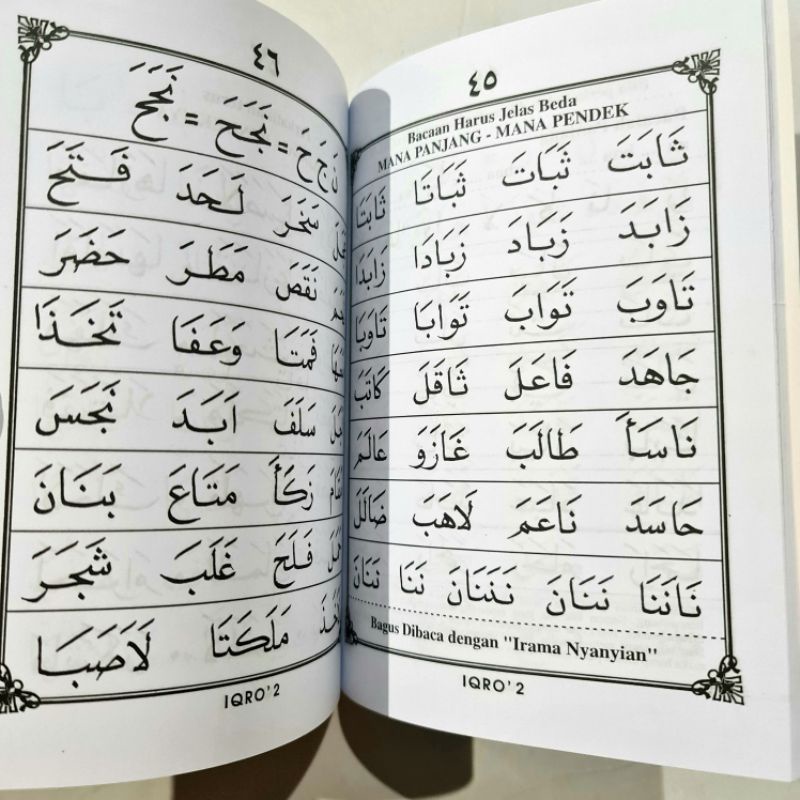 ٤٥
Bacaan Harus Jelas Beda
MANA PANJANG - MANA PENDEK
ثَابَتَ ثَبَاتَ ثَبَاتَا ثَابَتَا
زَابَدَ زَبَادَ زَبَادَا زَابَدَا
تَاوَبَ تَوَابَ تَوَابَا تَاوَبَا
جَاهَدَ فَاعَلَ ثَاقَلَ كَاتَبَ
نَاسَأَ طَالَبَ غَازَوَ عَالَمَ
حَاسَدَ نَاعَمَ لَاهَبَ ضَالَلَ
نَانَنَا نَنَانَ نَنَنَانَ نَنَا نَنَانَ
Bagus Dibaca dengan "Irama Nyanyian"
IQRO' 2
٤٦
نَ جَ حَ = نَجَحَ = نَجَحَ
سَخَرَ لَحَدَ فَتَحَ
نَقَصَ مَطَرَ حَضَرَ
قَمَتَا وَعَفَا تَخَذَا
سَلَفَ اَبَدَ نَجَسَ
زَكَأَ مَتَاعَ بَنَانَ
فَلَحَ غَلَبَ شَجَرَ
مَلَكَتَا لَاَصَبَا
IQRO' 2